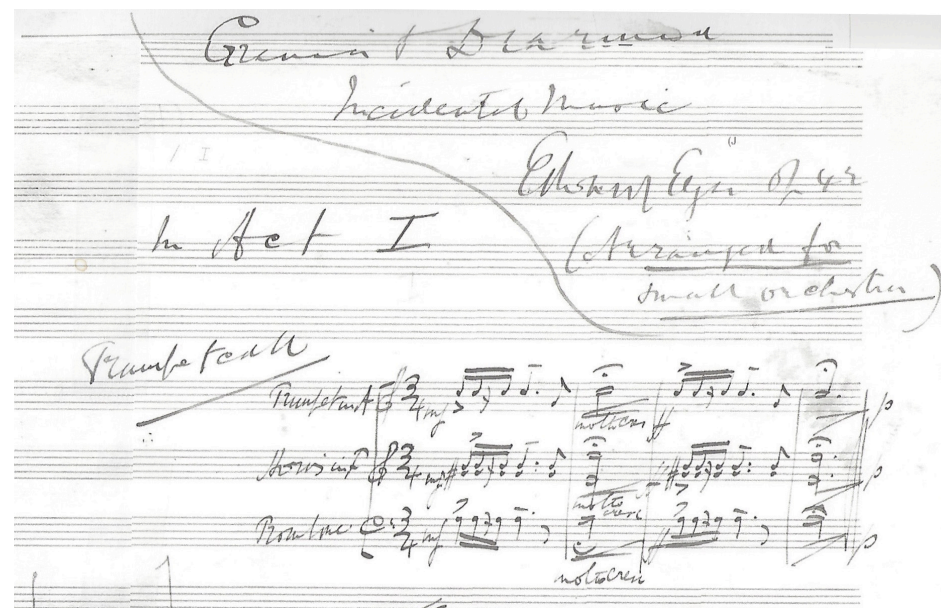 Grania & Diarmid
Incidental Music
Edward Elgar Op 42
In Act I
(Arranged for
small orchestra)
Trumpet call
Trumpet in A 3/4 mf molto cres ff p
Horns in F 3/4 mf molto cres ff p
Trombone 3/4 mf molto cres ff p